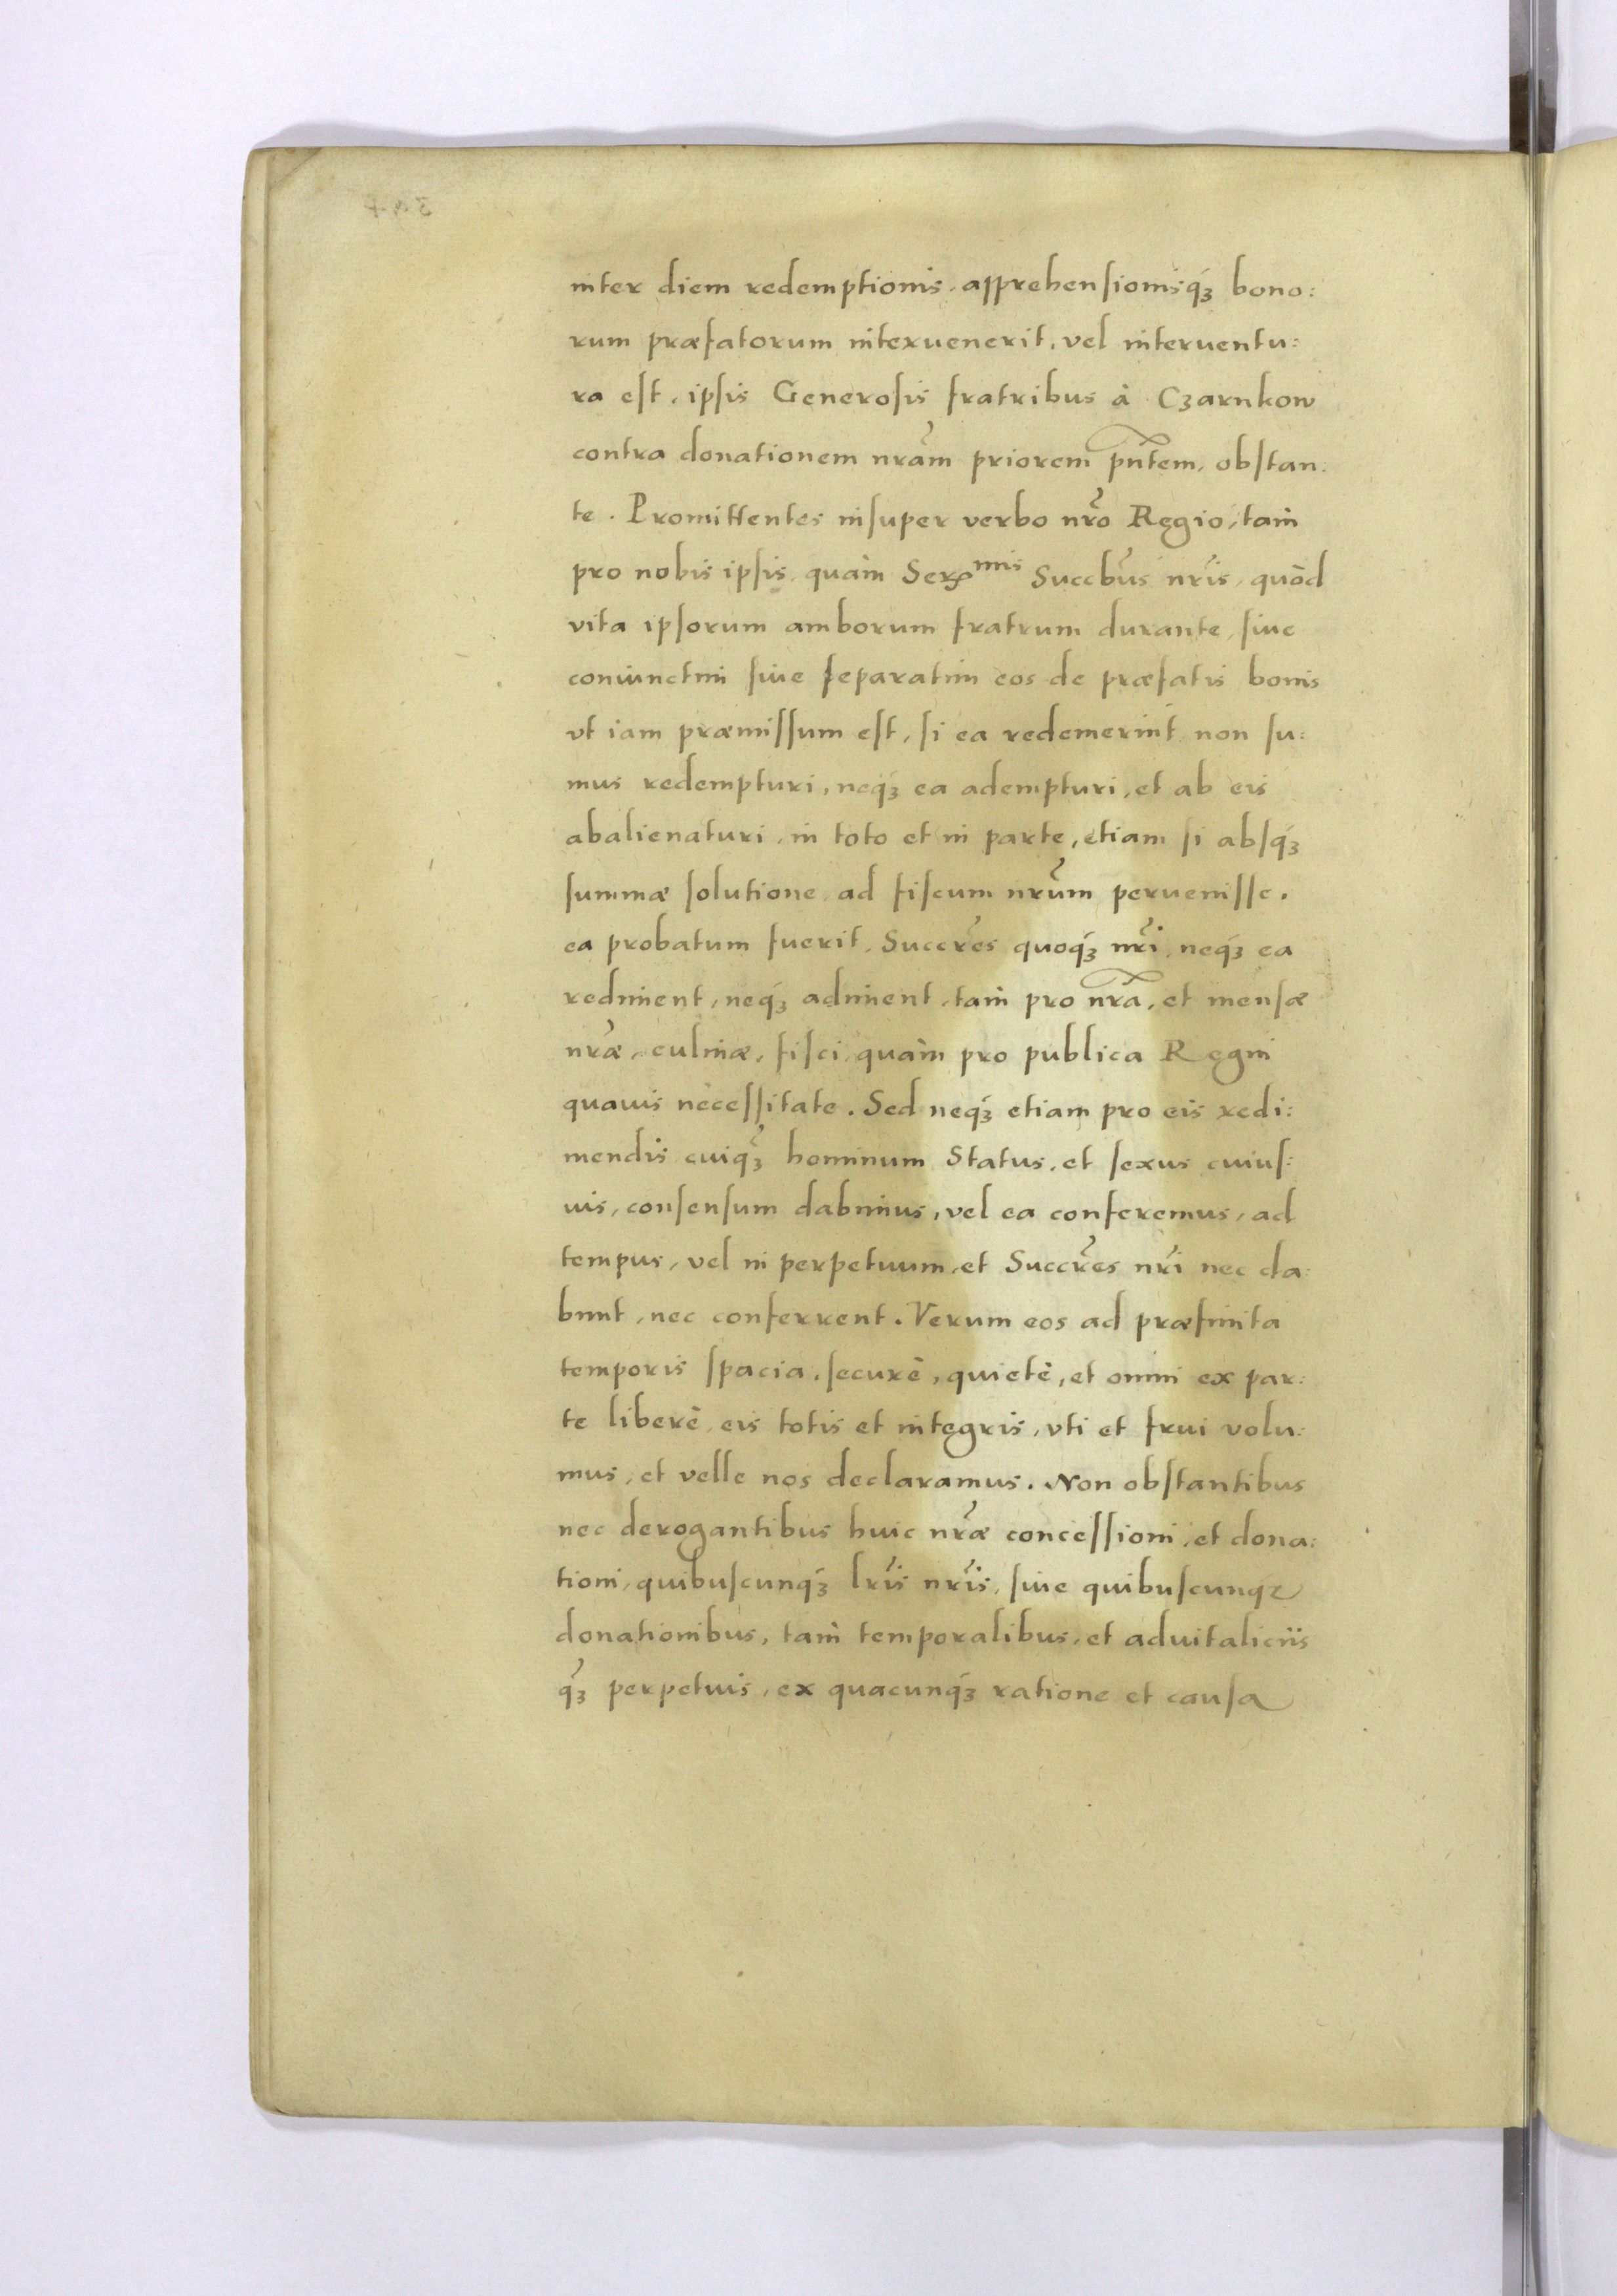 inter diem redemptionis, apprehensionisq́ꝫ bono:
rum præfatorum interuenerit, vel interuentu:
ra est, ipsis Generosis fratribus à Czarnkow
contra donationem nrãm priorem pñtem, obstan:
te. Promittentes insuper verbo nrõ Regio, tam̀
pro nobis ipsis, quàm Serꝫmis Succbũs nrĩs, quòd
vita ipsorum amborum fratrum durante, siue
coniunctim siue separatim eos de præfatis bonis
vt iam præmissum est, si ea redemerint non su:
mus redempturi, neq́ꝫ ea adempturi, et ab eis
abalienaturi, in toto et in parte, etiam si absq́ꝫ
summæ solutione ad fiscum nrũm peruenisse,
ea probatum fuerit. Succrẽs quoq́ꝫ nrĩ, neq́ꝫ ea
rediment, neq́ꝫ adiment, tam̀ pro nrã, et mensæ
nrãe, culinæ, fisci, quàm pro publica Regni
quauis necessitate. Sed neq́ꝫ etiam pro eis redi:
mendis cuiq̃ꝫ hominum Status, et sexus cuius:
uis, consensum dabimus, vel ea conferemus, ad
tempus, vel in perpetuum, et Succrẽs nrĩ nec da:
bunt, nec conferrent. Verum eos ad præfinita
temporis spacia, securè, quietè, et omni ex par:
te liberè, eis totis et integris, vti et frui volu:
mus, et velle nos declaramus. Non obstantibus
nec derogantibus huic nrãe concessioni, et dona:
tioni, quibuscunq́ꝫ lrĩs nrĩs, siue quibuscunqꝫ
donationibus, tam̀ temporalibus, et aduitaliciis
q̃ꝫ perpetuis, ex quacunq́ꝫ ratione et causa